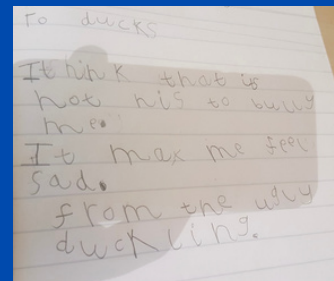 To ducks
I think that is
not nis to bully
me.
It max me feel
sad.
from the ugly
duckling.